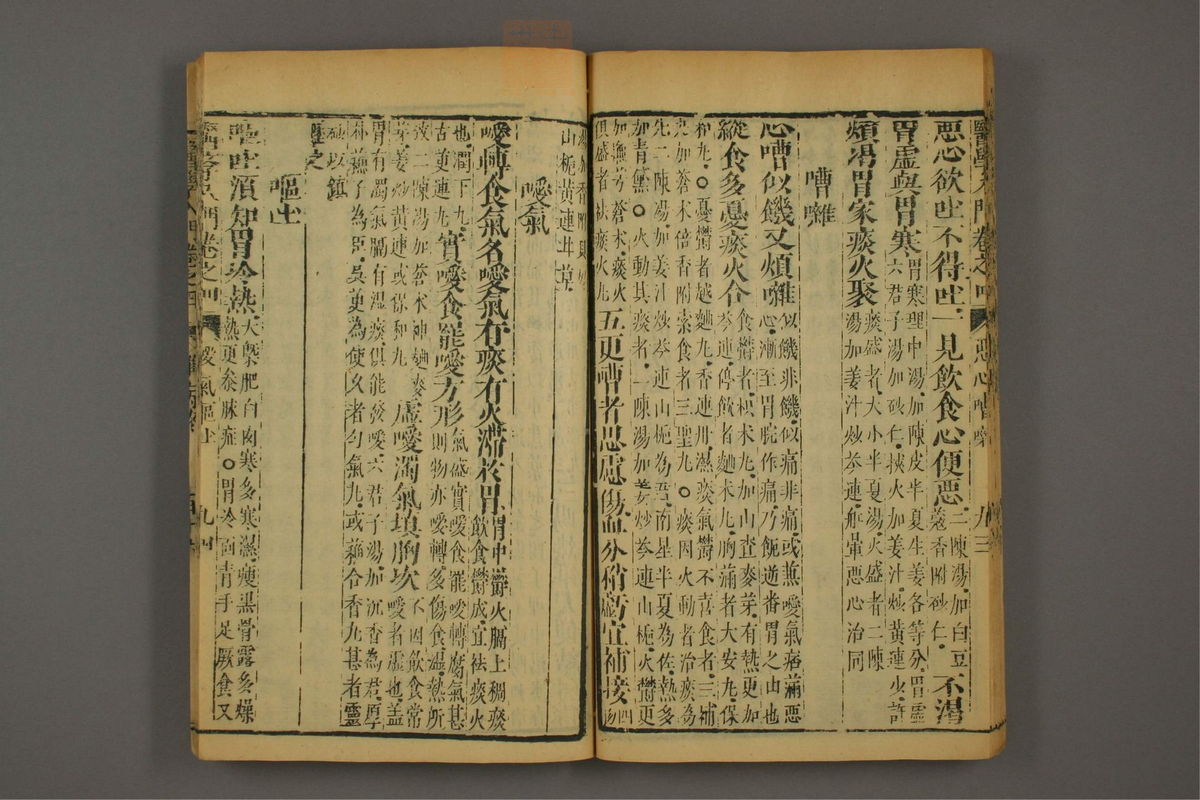 醫學入門卷之四 惡心嘈雜 九三
惡心欲吐不得吐一見飲食心便惡二陳湯加白豆蔻香附砂仁不渴
胃虛與胃寒胃寒理中湯加陳皮半夏生姜各等分胃虛六君子湯加砂仁挾火加姜汁炒黃連少許
煩渴胃家痰火聚痰盛者大小半夏湯火盛者二陳湯加姜汁炒芩連解暈惡心治同
嘈雜
心嘈似饑又煩雜似饑非饑似痛非痛或兼噯氣痞滿惡心漸至胃脘作痛乃
縱食多憂痰火合食鬱者枳朮丸加山查麥芽有熱更加芩連停飲者麯朮丸胸滿者大安丸保
和丸○憂鬱者越麯丸香連丹濕痰氣鬱不喜食者三補
丸加蒼朮倍香附素食者三聖丸○痰因火動者治痰為
先二陳湯加姜汁炒芩連山梔為君南星半夏為佐熱多
加青黛○火動其痰者二陳湯加姜炒芩連山梔火鬱更
加撫芎蒼朮痰火俱盛者祛痰火丸五更嘈者思慮傷血分稍虧宜補接四物湯
加香附
山梔黃連甘草
噯氣
噯轉食氣名噯氣有痰有火滯於胃胃中鬱火膈上稠痰飲食鬱成宜祛痰火
也潤下丸古萸連丸實噯食罷噯方形氣盛實噯食罷噯轉腐氣甚則物亦噯轉多傷食濕熱所
致二陳湯加蒼朮神麯麥芽姜炒黃連或保和丸虛噯濁氣填胸次不因飲食常噯者虛也蓋
胃有濁氣膈有濕痰俱能發噯六君子湯加沉香為君厚
朴蘇子為臣吳萸為使久者勻氣丸或蘇合香丸甚者靈
砂以鎮
墜之
嘔吐
嘔吐須知胃冷熱大槩肥白肉寒多寒濕瘦黑骨露多燥熱更參脉症○胃冷面青手足厥食又
醫學入門卷之四 噯氣嘔吐 九四